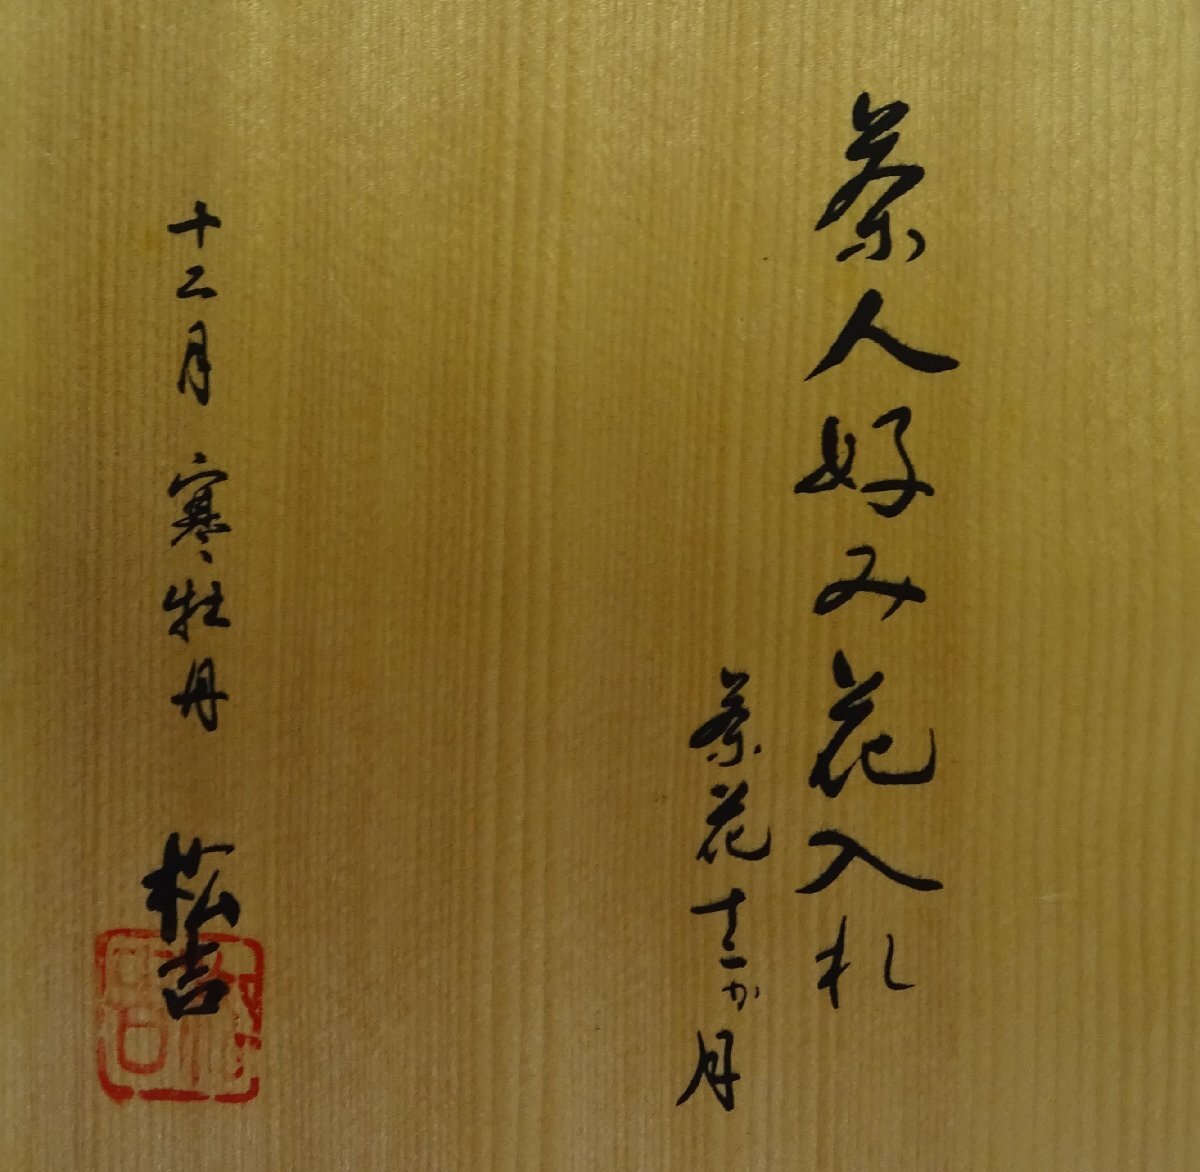 茶人好み花入札
茶花十二か月
十二月 寒牡丹
松吉